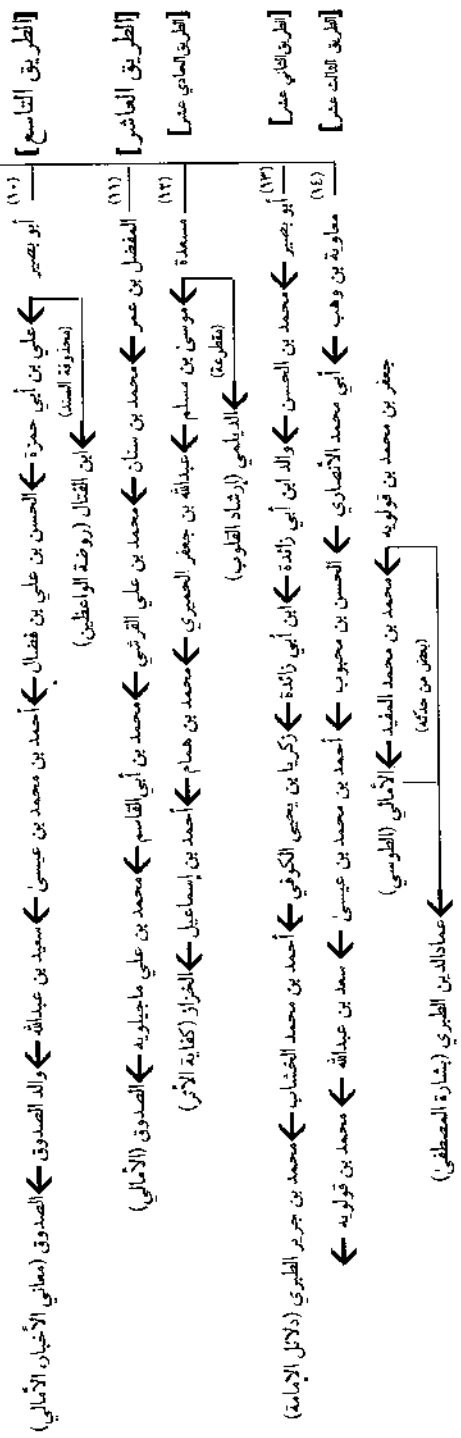 [الطريق التاسع]
(١٠)
أبو بصير ← علي بن أبي حمزة ← الحسن بن علي بن فضال ← أحمد بن محمد بن عيسى ← سعيد بن عبدالله ← والد الصدوق ← الصدوق (معاني الأخبار، الأمالي)
(محذوفة السند)
ابن الفتال (روضة الواعظين)
[الطريق العاشر]
(١١)
المفضل بن عمر ← محمد بن سنان ← محمد بن علي القرشي ← محمد بن أبي القاسم ← محمد بن علي ماجيلويه ← الصدوق (الأمالي)
[الطريق الحادي عشر]
(١٢)
مسعدة ← موسى بن مسلم ← عبدالله بن جعفر الحميري ← محمد بن همام ← أحمد بن إسماعيل ← الخزاز (كفاية الأثر)
(مقطوعة)
الديلمي (إرشاد القلوب)
[الطريق الثاني عشر]
(١٣)
أبو بصير ← محمد بن الحسن ← والد ابن أبي زائدة ← ابن أبي زائدة ← زكريا بن يحيى الكوفي ← أحمد بن محمد الخشاب ← محمد بن جرير الطبري (دلائل الإمامة)
[الطريق الثالث عشر]
(١٤)
معاوية بن وهب ← أبي محمد الأنصاري ← الحسن بن محبوب ← أحمد بن محمد بن عيسى ← سعد بن عبدالله ← محمد بن قولويه ←
جعفر بن محمد بن قولويه ← محمد بن محمد المفيد ← الأمالي (الطوسي)
(بعض من حدثه)
عمادالدين الطبري (بشارة المصطفى)